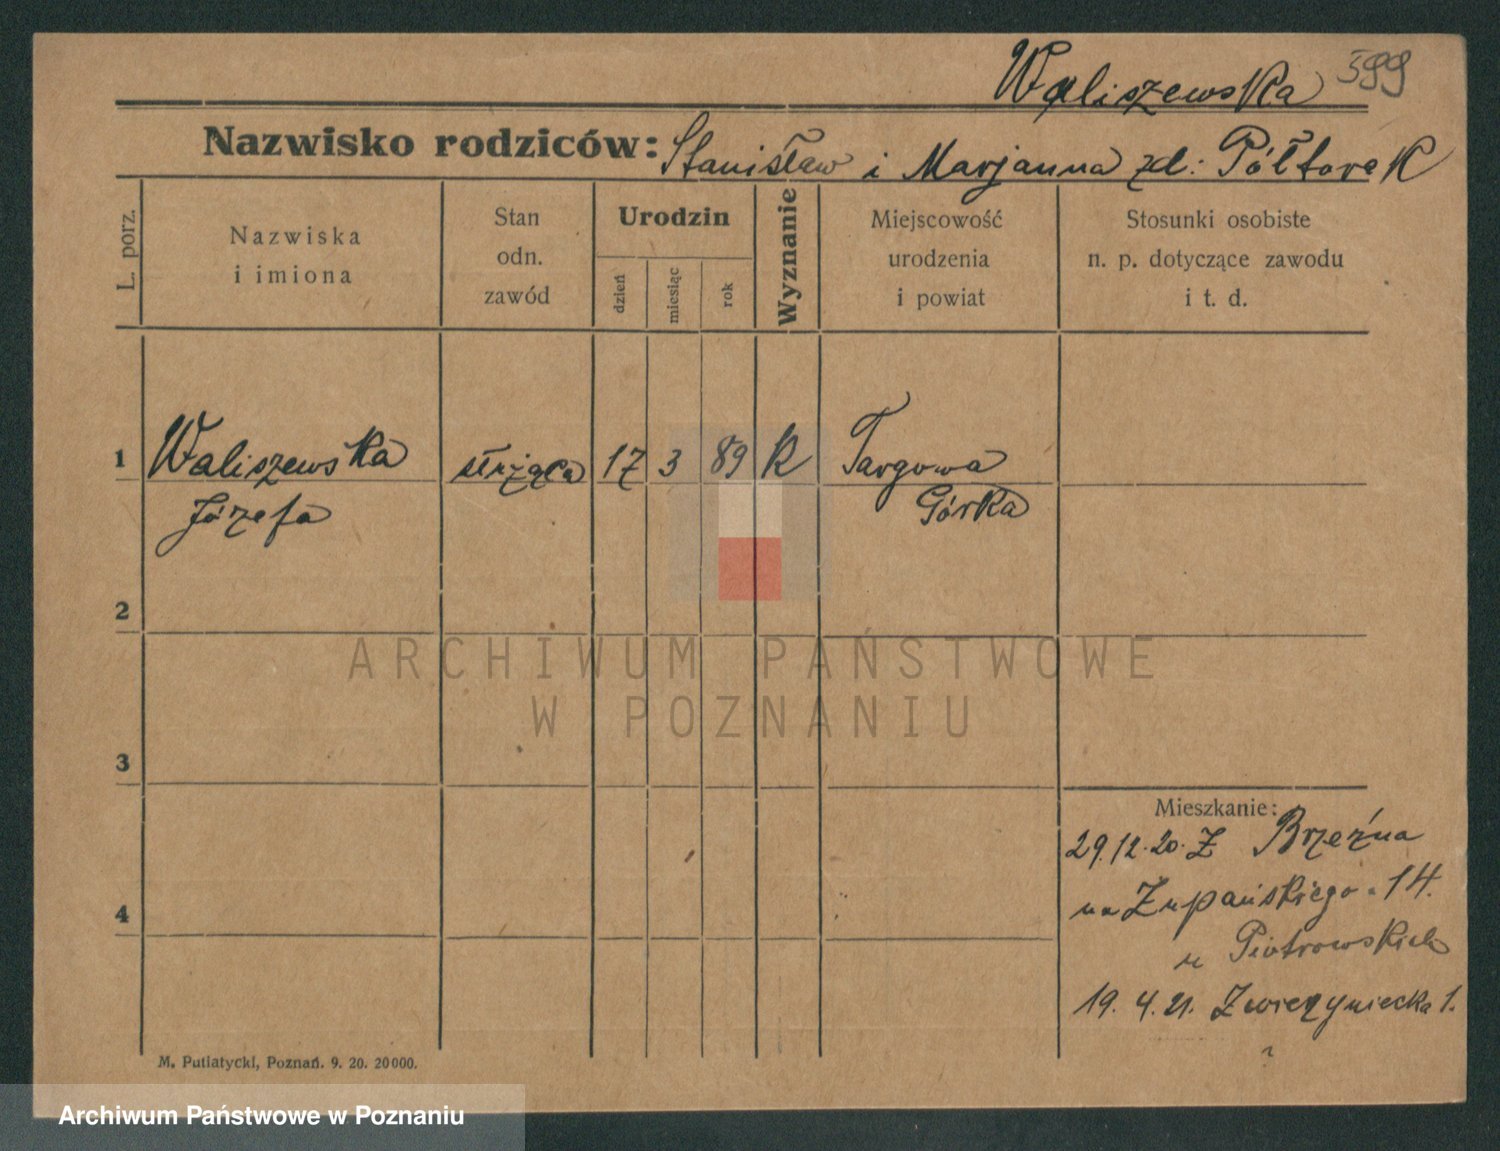 Waliszewska 599
Nazwisko rodziców: Stanisław i Marjanna zd: Półtorak
L. porz.
Nazwiska
i imiona
Stan
odn.
zawód
Urodzin
dzień
miesiąc
rok
Wyznanie
Miejscowość
urodzenia
i powiat
Stosunki osobiste
n. p. dotyczące zawodu
i t. d.
1 Waliszewska służąca 17 3 89 K Targowa
Józefa Górka
2
3
4
ARCHIWUM PAŃSTWOWE
W POZNANIU
Mieszkanie:
29.12.20. Z Brzeźna
na Zupańskiego 14.
u Piotrowskich
19. 4. 21. Zwierzyniecka 1.
M. Putiatycki, Poznań. 9. 20. 20000.
Archiwum Państwowe w Poznaniu